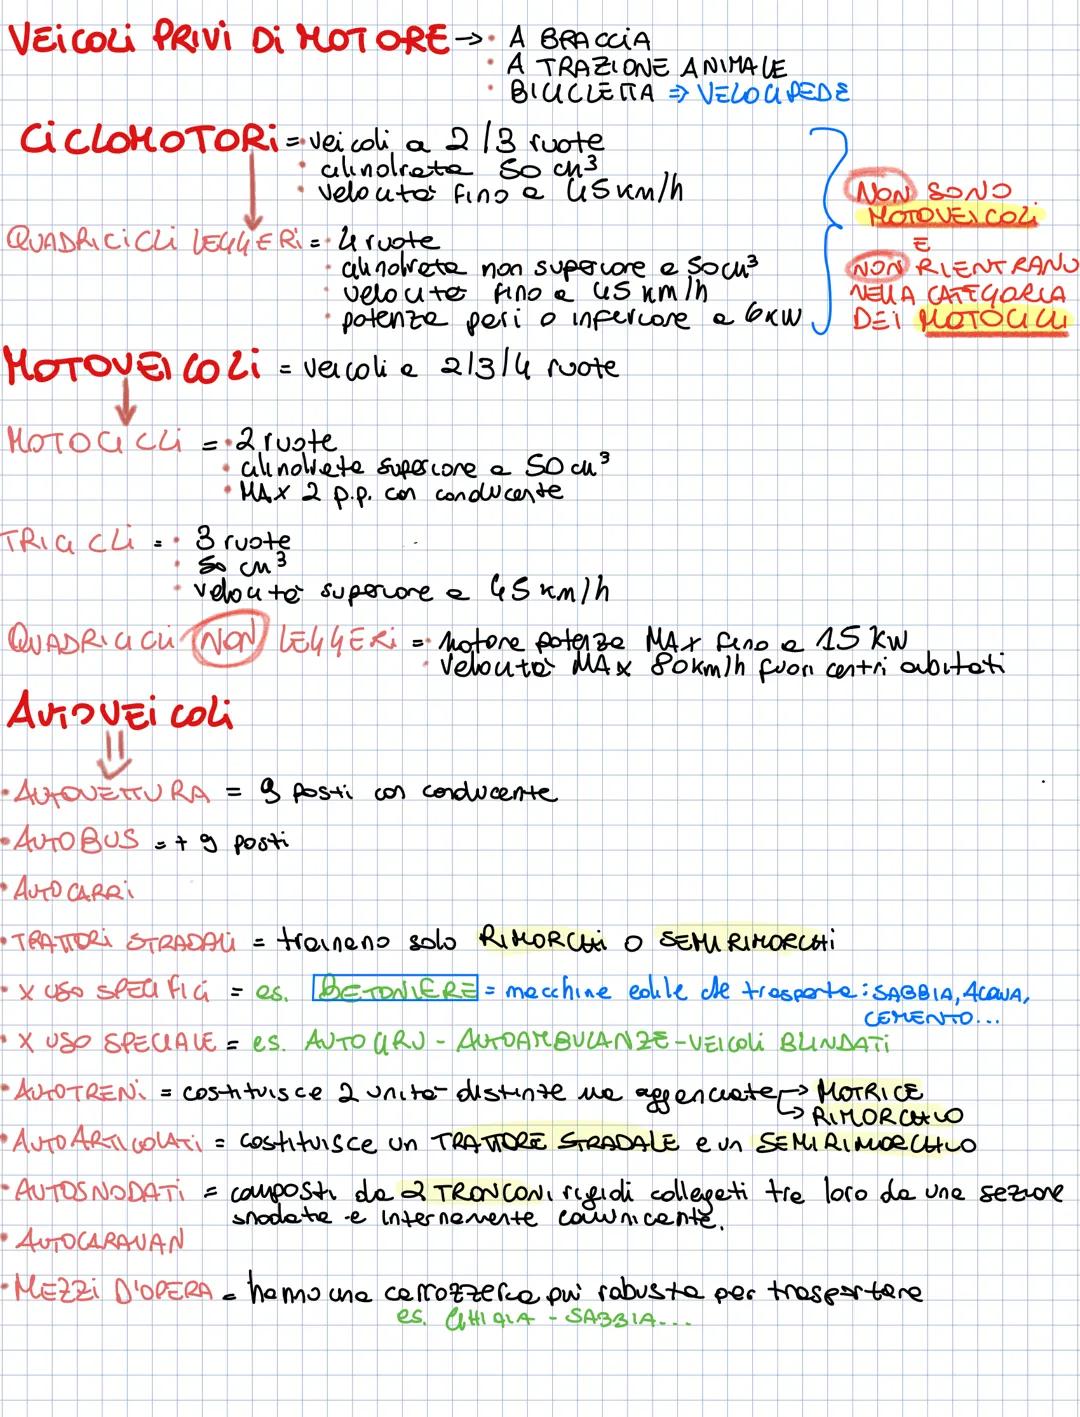 VEICOLI PRIVI DI MOTORE → • A BRACCIA
• A TRAZIONE ANIMALE
• BICICLETTA ⇒ VELOCIPEDE
CICLOMOTORI = • veicoli a 2/3 ruote
• cilindrata 50 cm³
• velocità fino a 45 km/h
QUADRICICLI LEGGERI = • 4 ruote
• cilindrata non superiore a 50 cm³
• velocità fino a 45 km/h
• potenza pari o inferiore a 6 KW
NON SONO
MOTOVEICOLI
E
NON RIENTRANO
NELLA CATEGORIA
DEI MOTOCICLI
MOTOVEICOLI = veicoli a 2/3/4 ruote
MOTOCICLI = • 2 ruote
• cilindrata superiore a 50 cm³
• MAX 2 p.p. con conducente
TRICICLI = • 3 ruote
• 50 cm³
• velocità superiore a 45 km/h
QUADRICICLI NON LEGGERI = • Motore potenza MAX fino a 15 KW
• velocità MAX 80 km/h fuori centri abitati
AUTOVEICOLI
• AUTOVETTURA = 9 posti con conducente
• AUTOBUS = + 9 posti
• AUTOCARRI
• TRATTORI STRADALI = trainano solo RIMORCHI O SEMIRIMORCHI
• X USO SPECIFICI = es. BETONIERE = macchine edile che trasporta: SABBIA, ACQUA,
CEMENTO...
• X USO SPECIALE = es. AUTOGRU - AUTOAMBULANZE - VEICOLI BLINDATI
• AUTOTRENI = costituisce 2 unità distinte ma agganciate → MOTRICE
→ RIMORCHIO
• AUTOARTICOLATI = costituisce un TRATTORE STRADALE e un SEMIRIMORCHIO
• AUTOSNODATI = composti da 2 TRONCONI rigidi collegati tra loro da una sezione
snodata e internamente comunicante.
• AUTOCARAVAN
• MEZZI D'OPERA = hanno una carrozzeria più robusta per trasportare
es. GHIAIA - SABBIA...